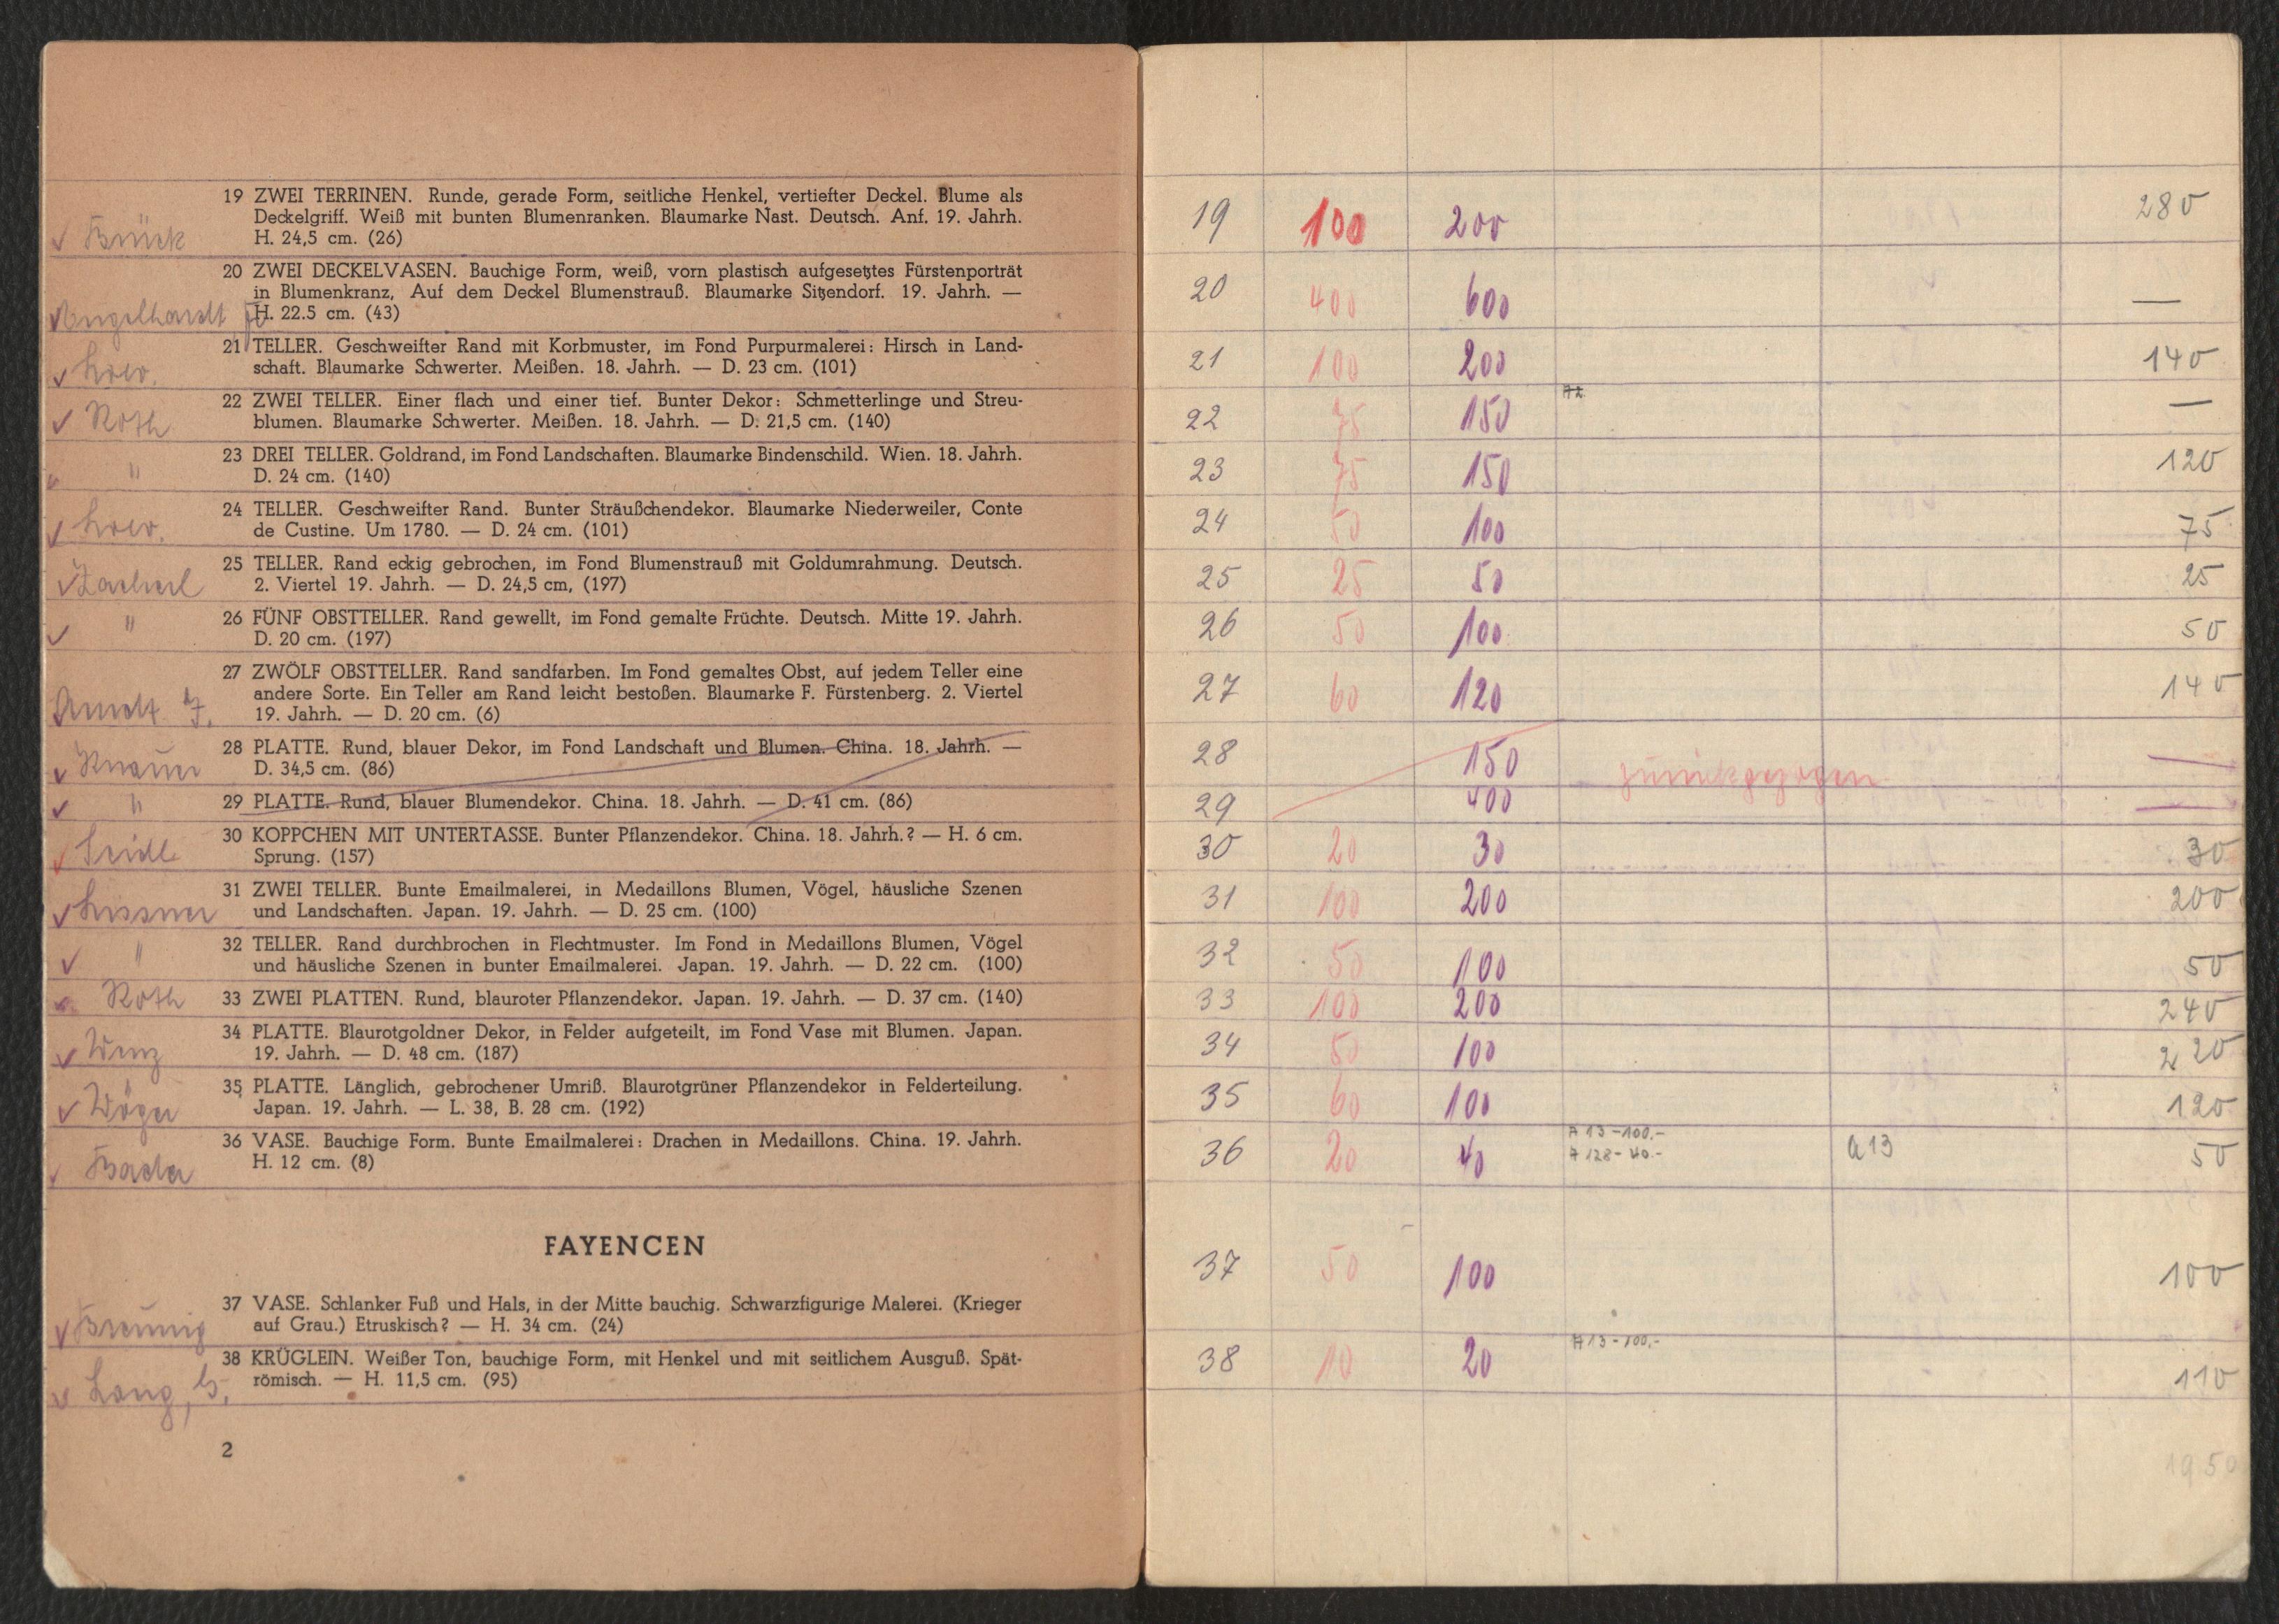 19 ZWEI TERRINEN. Runde, gerade Form, seitliche Henkel, vertiefter Deckel. Blume als
Deckelgriff. Weiß mit bunten Blumenranken. Blaumarke Nast. Deutsch. Anf. 19. Jahrh.
✓ Brück H. 24,5 cm. (26)
20 ZWEI DECKELVASEN. Bauchige Form, weiß, vorn plastisch aufgesetztes Fürstenporträt
in Blumenkranz, Auf dem Deckel Blumenstrauß. Blaumarke Sitzendorf. 19. Jahrh. —
✓ Engelhardt H. 22.5 cm. (43)
21 TELLER. Geschweifter Rand mit Korbmuster, im Fond Purpurmalerei: Hirsch in Land-
✓ schaft. Blaumarke Schwerter. Meißen. 18. Jahrh. — D. 23 cm. (101)
22 ZWEI TELLER. Einer flach und einer tief. Bunter Dekor: Schmetterlinge und Streu-
✓ Roth blumen. Blaumarke Schwerter. Meißen. 18. Jahrh. — D. 21,5 cm. (140)
23 DREI TELLER. Goldrand, im Fond Landschaften. Blaumarke Bindenschild. Wien. 18. Jahrh.
✓ " D. 24 cm. (140)
24 TELLER. Geschweifter Rand. Bunter Sträußchendekor. Blaumarke Niederweiler, Conte
✓ de Custine. Um 1780. — D. 24 cm. (101)
25 TELLER. Rand eckig gebrochen, im Fond Blumenstrauß mit Goldumrahmung. Deutsch.
✓ Zacherl 2. Viertel 19. Jahrh. — D. 24,5 cm, (197)
26 FÜNF OBSTTELLER. Rand gewellt, im Fond gemalte Früchte. Deutsch. Mitte 19. Jahrh.
✓ " D. 20 cm. (197)
27 ZWÖLF OBSTTELLER. Rand sandfarben. Im Fond gemaltes Obst, auf jedem Teller eine
andere Sorte. Ein Teller am Rand leicht bestoßen. Blaumarke F. Fürstenberg. 2. Viertel
Arndt 19. Jahrh. — D. 20 cm. (6)
28 PLATTE. Rund, blauer Dekor, im Fond Landschaft und Blumen. China. 18. Jahrh. —
✓ Knauer D. 34,5 cm. (86)
✓ " 29 PLATTE. Rund, blauer Blumendekor. China. 18. Jahrh. — D. 41 cm. (86)
30 KOPPCHEN MIT UNTERTASSE. Bunter Pflanzendekor. China. 18. Jahrh.? — H. 6 cm.
✓ Seidl Sprung. (157)
31 ZWEI TELLER. Bunte Emailmalerei, in Medaillons Blumen, Vögel, häusliche Szenen
✓ Lissner und Landschaften. Japan. 19. Jahrh. — D. 25 cm. (100)
32 TELLER. Rand durchbrochen in Flechtmuster. Im Fond in Medaillons Blumen, Vögel
✓ " und häusliche Szenen in bunter Emailmalerei. Japan. 19. Jahrh. — D. 22 cm. (100)
Roth 33 ZWEI PLATTEN. Rund, blauroter Pflanzendekor. Japan. 19. Jahrh. — D. 37 cm. (140)
34 PLATTE. Blaurotgoldner Dekor, in Felder aufgeteilt, im Fond Vase mit Blumen. Japan.
✓ Wenz 19. Jahrh. — D. 48 cm. (187)
35 PLATTE. Länglich, gebrochener Umriß. Blaurotgrüner Pflanzendekor in Felderteilung.
✓ Wöger Japan. 19. Jahrh. — L. 38, B. 28 cm. (192)
36 VASE. Bauchige Form. Bunte Emailmalerei: Drachen in Medaillons. China. 19. Jahrh.
✓ Bader H. 12 cm. (8)
FAYENCEN
37 VASE. Schlanker Fuß und Hals, in der Mitte bauchig. Schwarzfigurige Malerei. (Krieger
✓ Breunig auf Grau.) Etruskisch? — H. 34 cm. (24)
38 KRÜGLEIN. Weißer Ton, bauchige Form, mit Henkel und mit seitlichem Ausguß. Spät-
✓ Lang, römisch. — H. 11,5 cm. (95)
2
19 100 200 280
20 400 600 —
21 100 200 140
22 75 150 A 2 —
23 75 150 120
24 50 100 75
25 25 50 25
26 50 100 50
27 60 120 140
28 150 zurückgezogen —
29 400 —
30 20 30 30
31 100 200 200
32 50 100 50
33 100 200 240
34 50 100 220
35 60 100 120
A 13 - 100.-
36 20 40 A 128 - 40.- a 13 50
37 50 100 100
38 10 20 A 13 - 100.- 110
1950